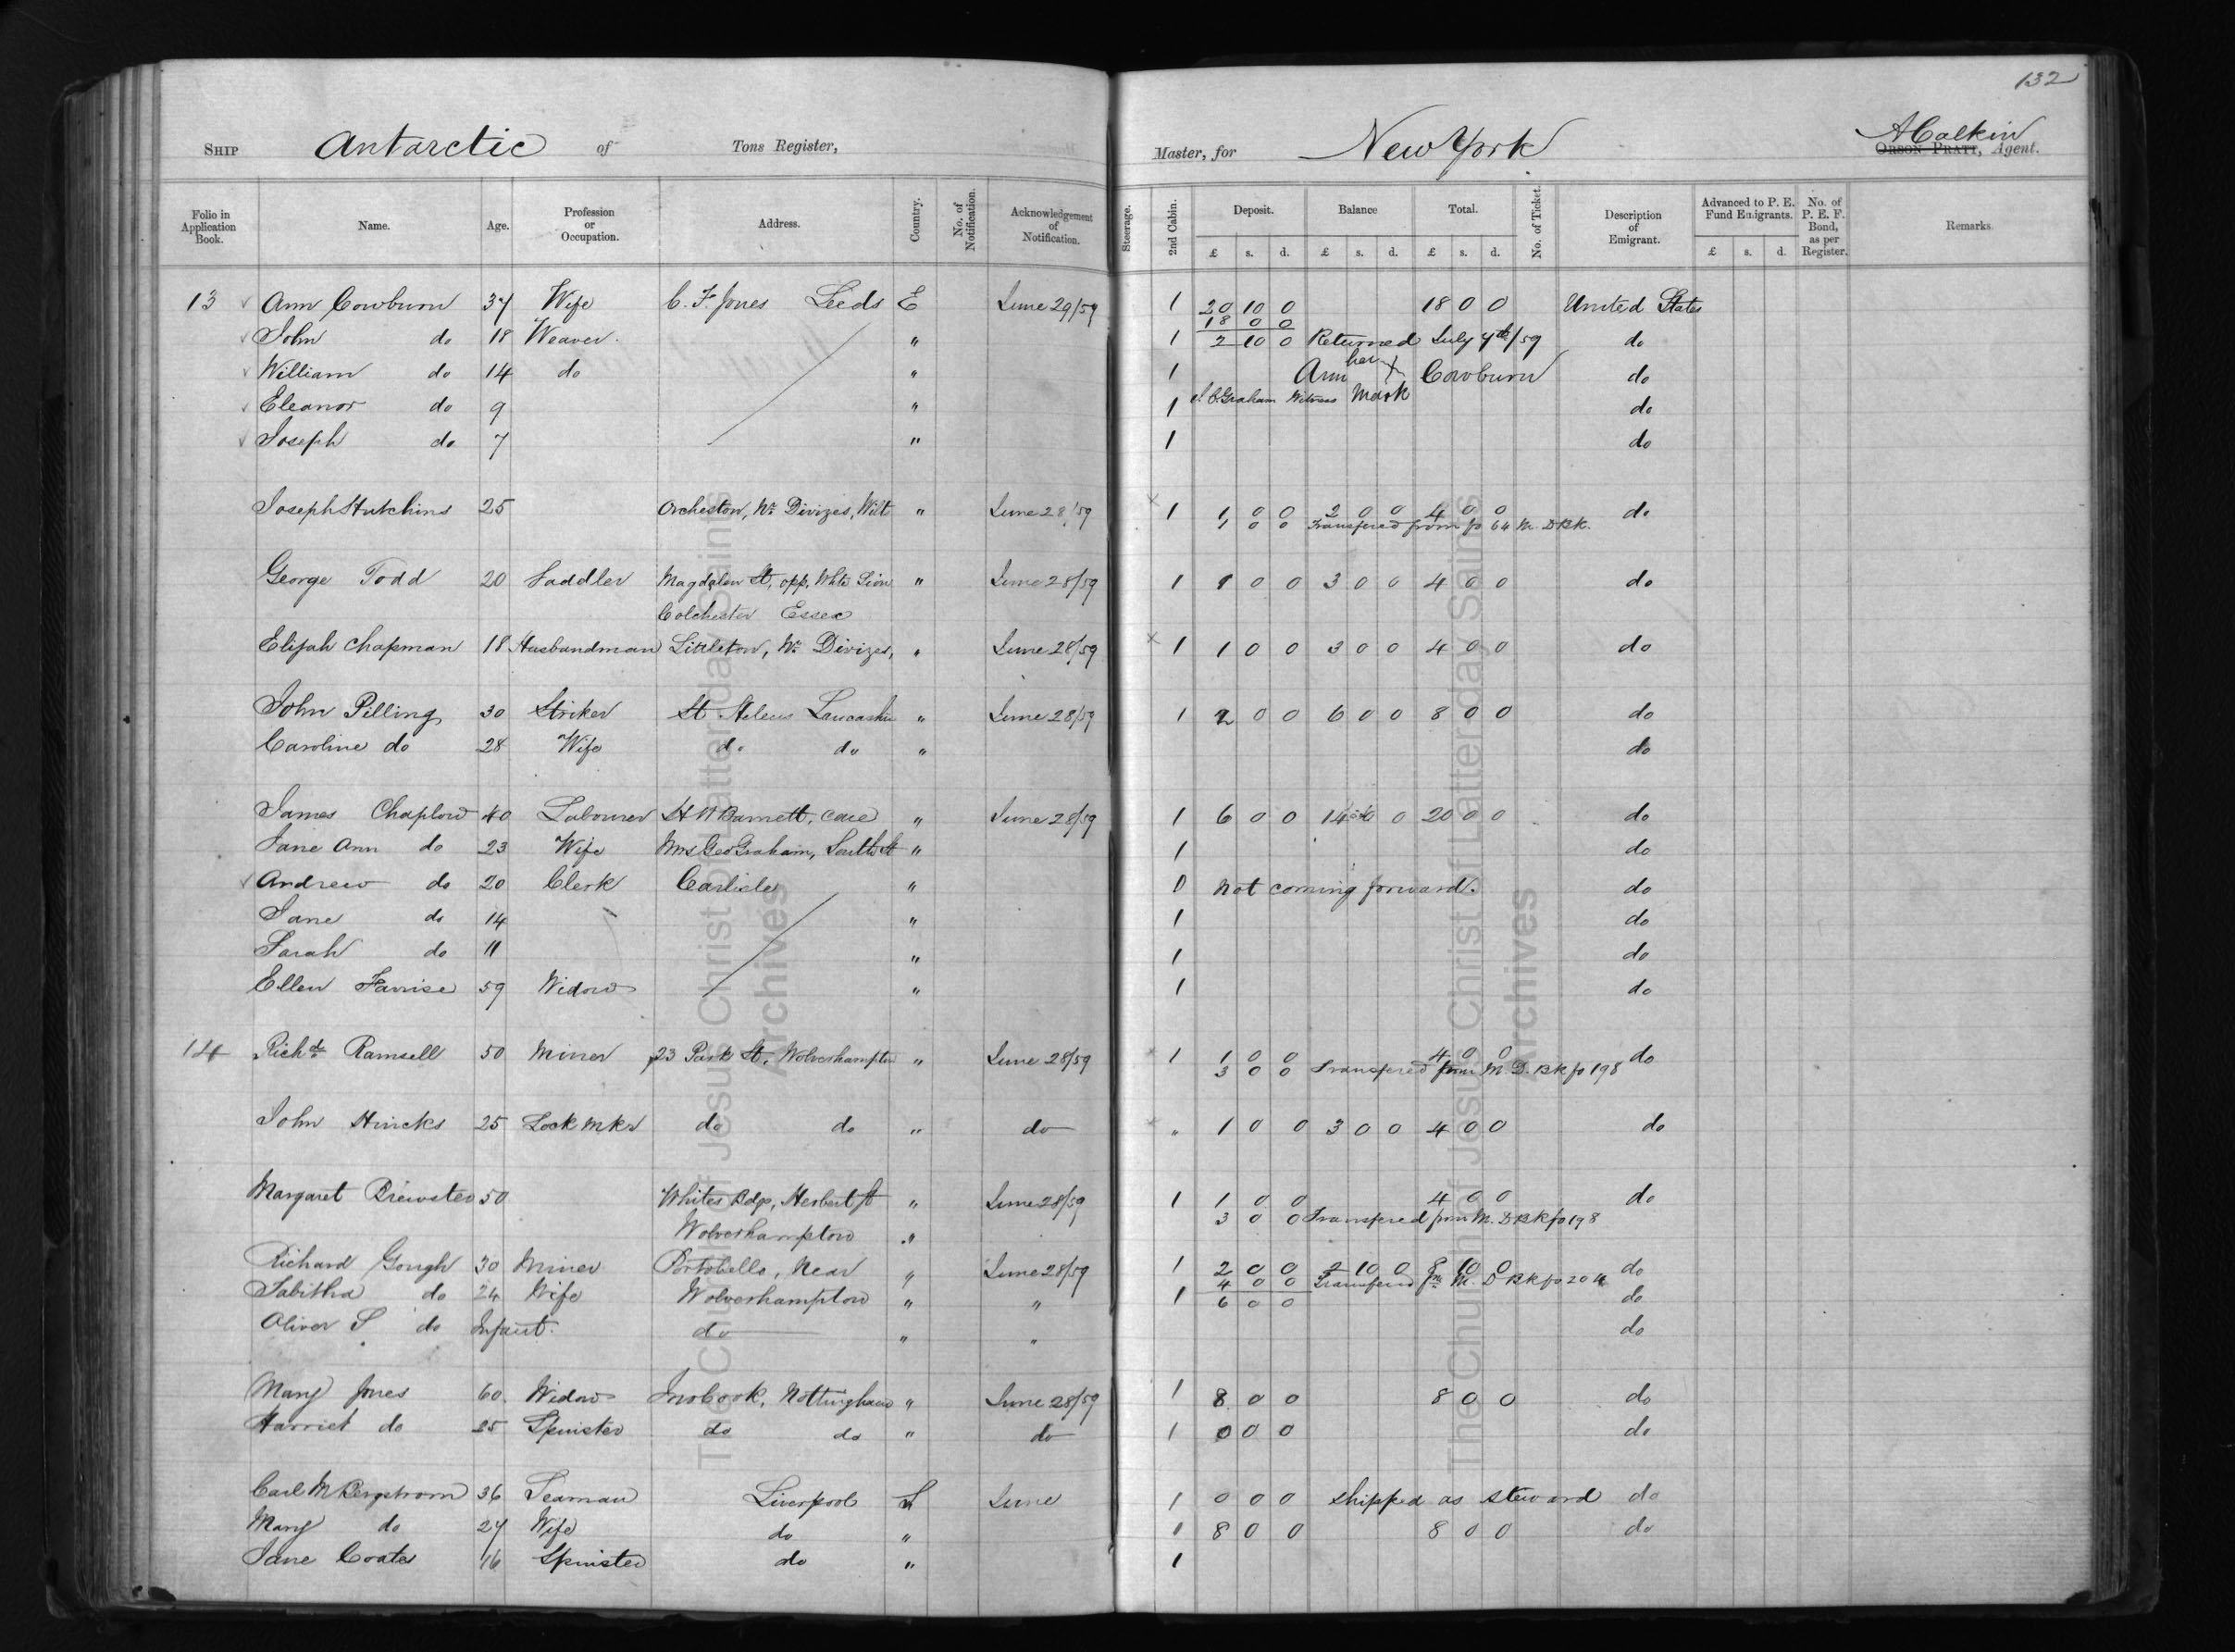 132
SHIP Antarctic of Tons Register, Master, for New York A Calkin
ORSON PRATT, Agent.
Folio in Application Book. Name. Age. Profession or Occupation. Address. Country. No. of Notification. Acknowledgement of Notification. Steerage. 2nd Cabin. Deposit. Balance Total. No. of Ticket. Description of Emigrant. Advanced to P. E. Fund Emigrants. No. of P. E. F. Bond, as per Register. Remarks.
£ s. d. £ s. d. £ s. d. £ s. d.
13 Ann Cowburn 37 Wife C. F. Jones Leeds E June 29/59 1 20 10 0 18 0 0 United States
18 0 0
John do 18 Weaver " 1 2 10 0 Returned July 4th/59 do
William do 14 do " 1 Ann her X Cowburn do
Eleanor do 9 " 1 Graham Witness Mark do
Joseph do 7 " 1 do
Joseph Hutchins 25 Orcheston, Nr Divizes, Wilt " June 28/59 x 1 1 0 0 2 0 0 4 0 0 do
1 0 0 Transfered from fo 64 M. D BK.
George Todd 20 Saddler Magdalen St, opp, White Lion " June 28/59 1 1 0 0 3 0 0 4 0 0 do
Colchester Essex
Elijah Chapman 18 Husbandman Littleton, Nr Divizes, " June 28/59 x 1 1 0 0 3 0 0 4 0 0 do
John Pilling 30 Striker St Helens Lancashire " June 28/59 1 2 0 0 6 0 0 8 0 0 do
Caroline do 28 Wife do do " do
James Chaplow 40 Labourer H N Barnett, care " June 28/59 1 6 0 0 14 0 0 20 0 0 do
Jane Ann do 23 Wife Mrs Geo Graham, South St " 1 do
Andrew do 20 Clerk Carlisle " 0 Not coming forward. do
Jane do 14 " 1 do
Sarah do 11 " 1 do
Ellen 59 Widow " 1 do
14 Richd Ramsell 50 Miner 23 Park St, Wolverhampton " June 28/59 x 1 1 0 0 4 0 0 do
3 0 0 Transfered from M. D. BK fo 198
John Hincks 25 Lock Mkr do do " do x " 1 0 0 3 0 0 4 0 0 do
Margaret Brewster 50 Whites Bdgs, Herbert St " June 28/59 1 1 0 0 4 0 0 do
3 0 0 Transfered from M. D BK fo 198
Wolverhampton "
Richard Gough 30 Miner Portobello, Near " June 28/59 1 2 0 0 2 10 0 8 10 0 do
4 0 0 Transfered fm M. D BK fo 204
Tabitha do 24 Wife Wolverhampton " " 1 6 0 0 do
Oliver S do Infant. do " " do
Mary Jones 60 Widow Nottingham " June 28/59 1 8 0 0 8 0 0 do
Harriet do 25 Spinster do do " do 1 0 0 0 do
Carl M Bergstrom 36 Seaman Liverpool June 1 0 0 0 Shipped as Steward do
Mary do 27 Wife do " 8 0 0 8 0 0 do
Jane Coates 16 Spinster do " 1
The Church of Jesus Christ of Latter-day Saints
Archives
The Church of Jesus Christ of Latter-day Saints
Archives